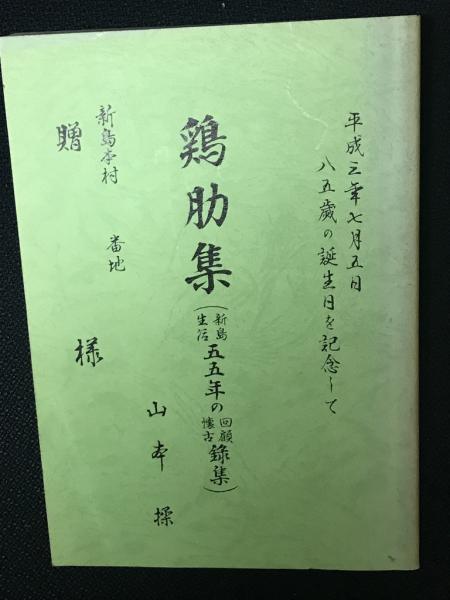 平成三年七月五日
八五歳の誕生日を記念して
鶏肋集(新島生活五五年の回顧懐古録集)
山本操
新島本村 番地
贈 様